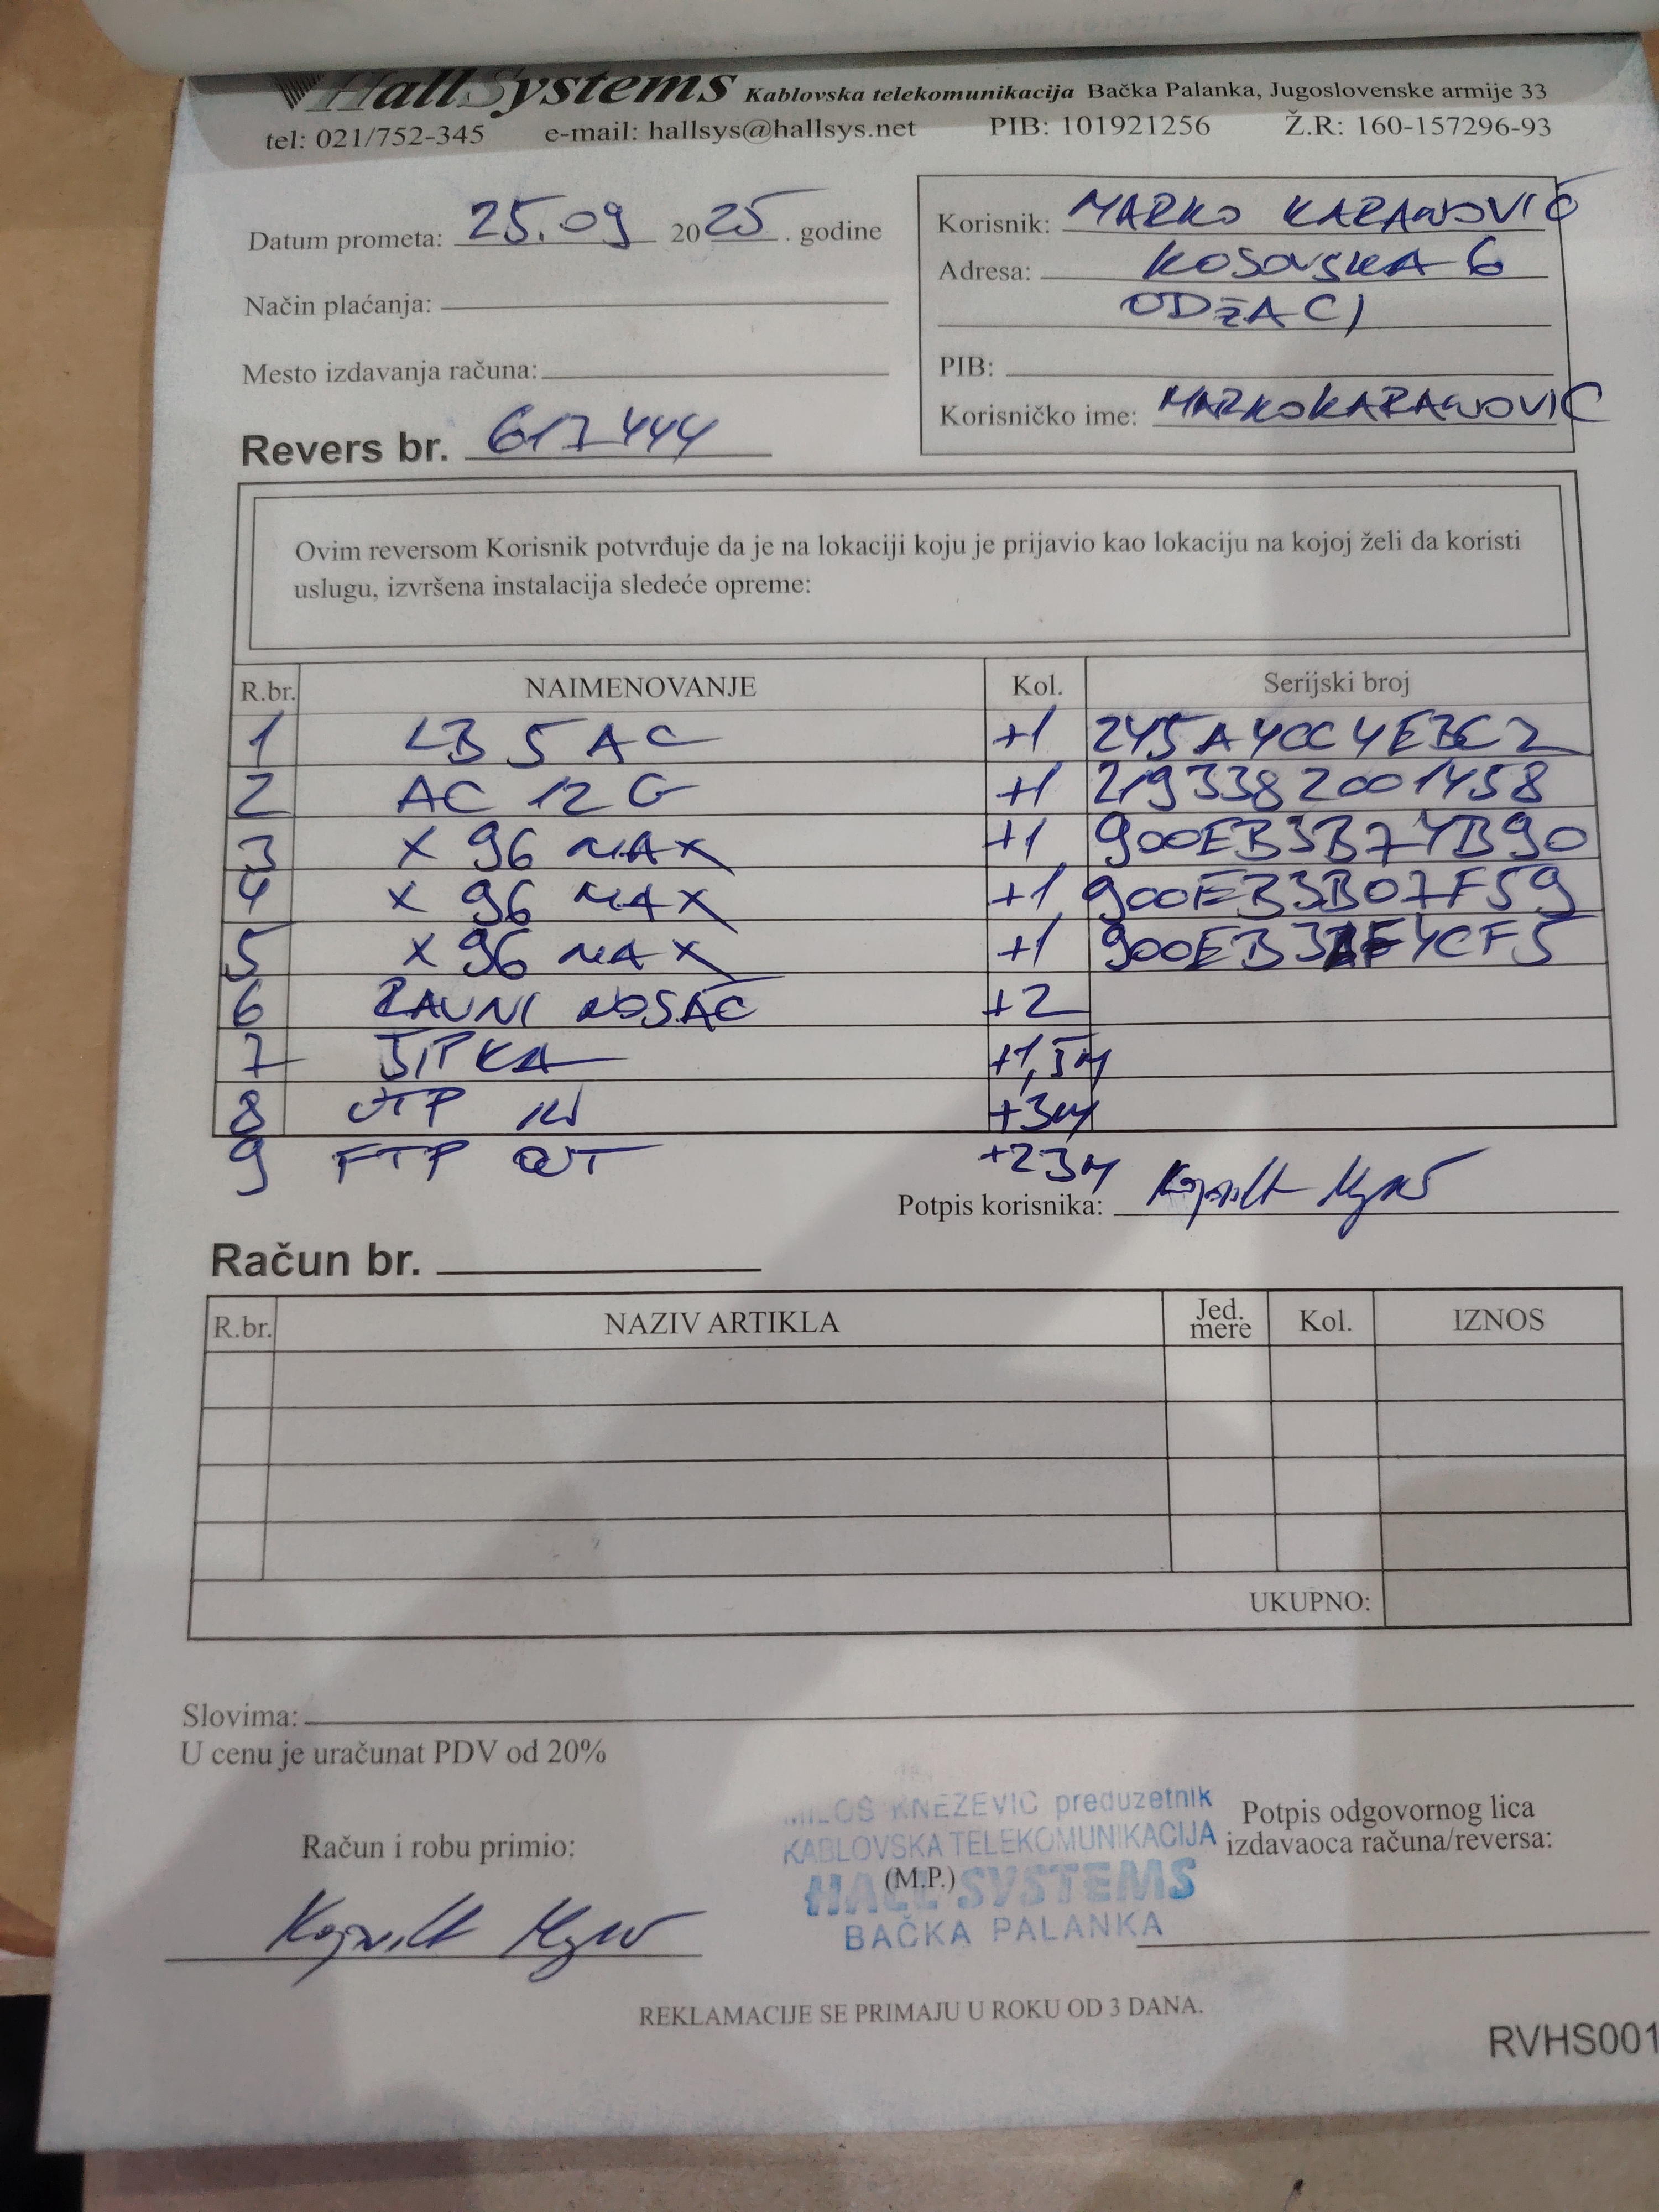 HallSystems Kablovska telekomunikacija Bačka Palanka, Jugoslovenske armije 33
tel: 021/752-345 e-mail: hallsys@hallsys.net PIB: 101921256 Ž.R: 160-157296-93
Datum prometa: 25.09 2025. godine
Korisnik: MARKO KARANOVIĆ
Adresa: KOSOVSKA 6
ODŽACI
Način plaćanja:
Mesto izdavanja računa:
PIB:
Korisničko ime: MARKOKARANOVIC
Revers br. 617444
Ovim reversom Korisnik potvrđuje da je na lokaciji koju je prijavio kao lokaciju na kojoj želi da koristi
uslugu, izvršena instalacija sledeće opreme:
R.br. NAIMENOVANJE Kol. Serijski broj
1 LB 5 AC +1 245A4CC4EBC2
2 AC 12 G +1 2193382001458
3 X 96 MAX +1 900EB3B74B90
4 X 96 MAX +1 900EB3B07F59
5 X 96 MAX +1
6 RAVNI NOSAČ +2
7 ŠIPKA +1,5M
8 UTP IN +3M
9 FTP OUT +23M
Potpis korisnika:
Račun br.
R.br. NAZIV ARTIKLA Jed. mere Kol. IZNOS
UKUPNO:
Slovima:
U cenu je uračunat PDV od 20%
MILOŠ KNEZEVIC preduzetnik
KABLOVSKA TELEKOMUNIKACIJA
HALL SYSTEMS
BAČKA PALANKA
Račun i robu primio:
(M.P.)
Potpis odgovornog lica
izdavaoca računa/reversa:
REKLAMACIJE SE PRIMAJU U ROKU OD 3 DANA.
RVHS001